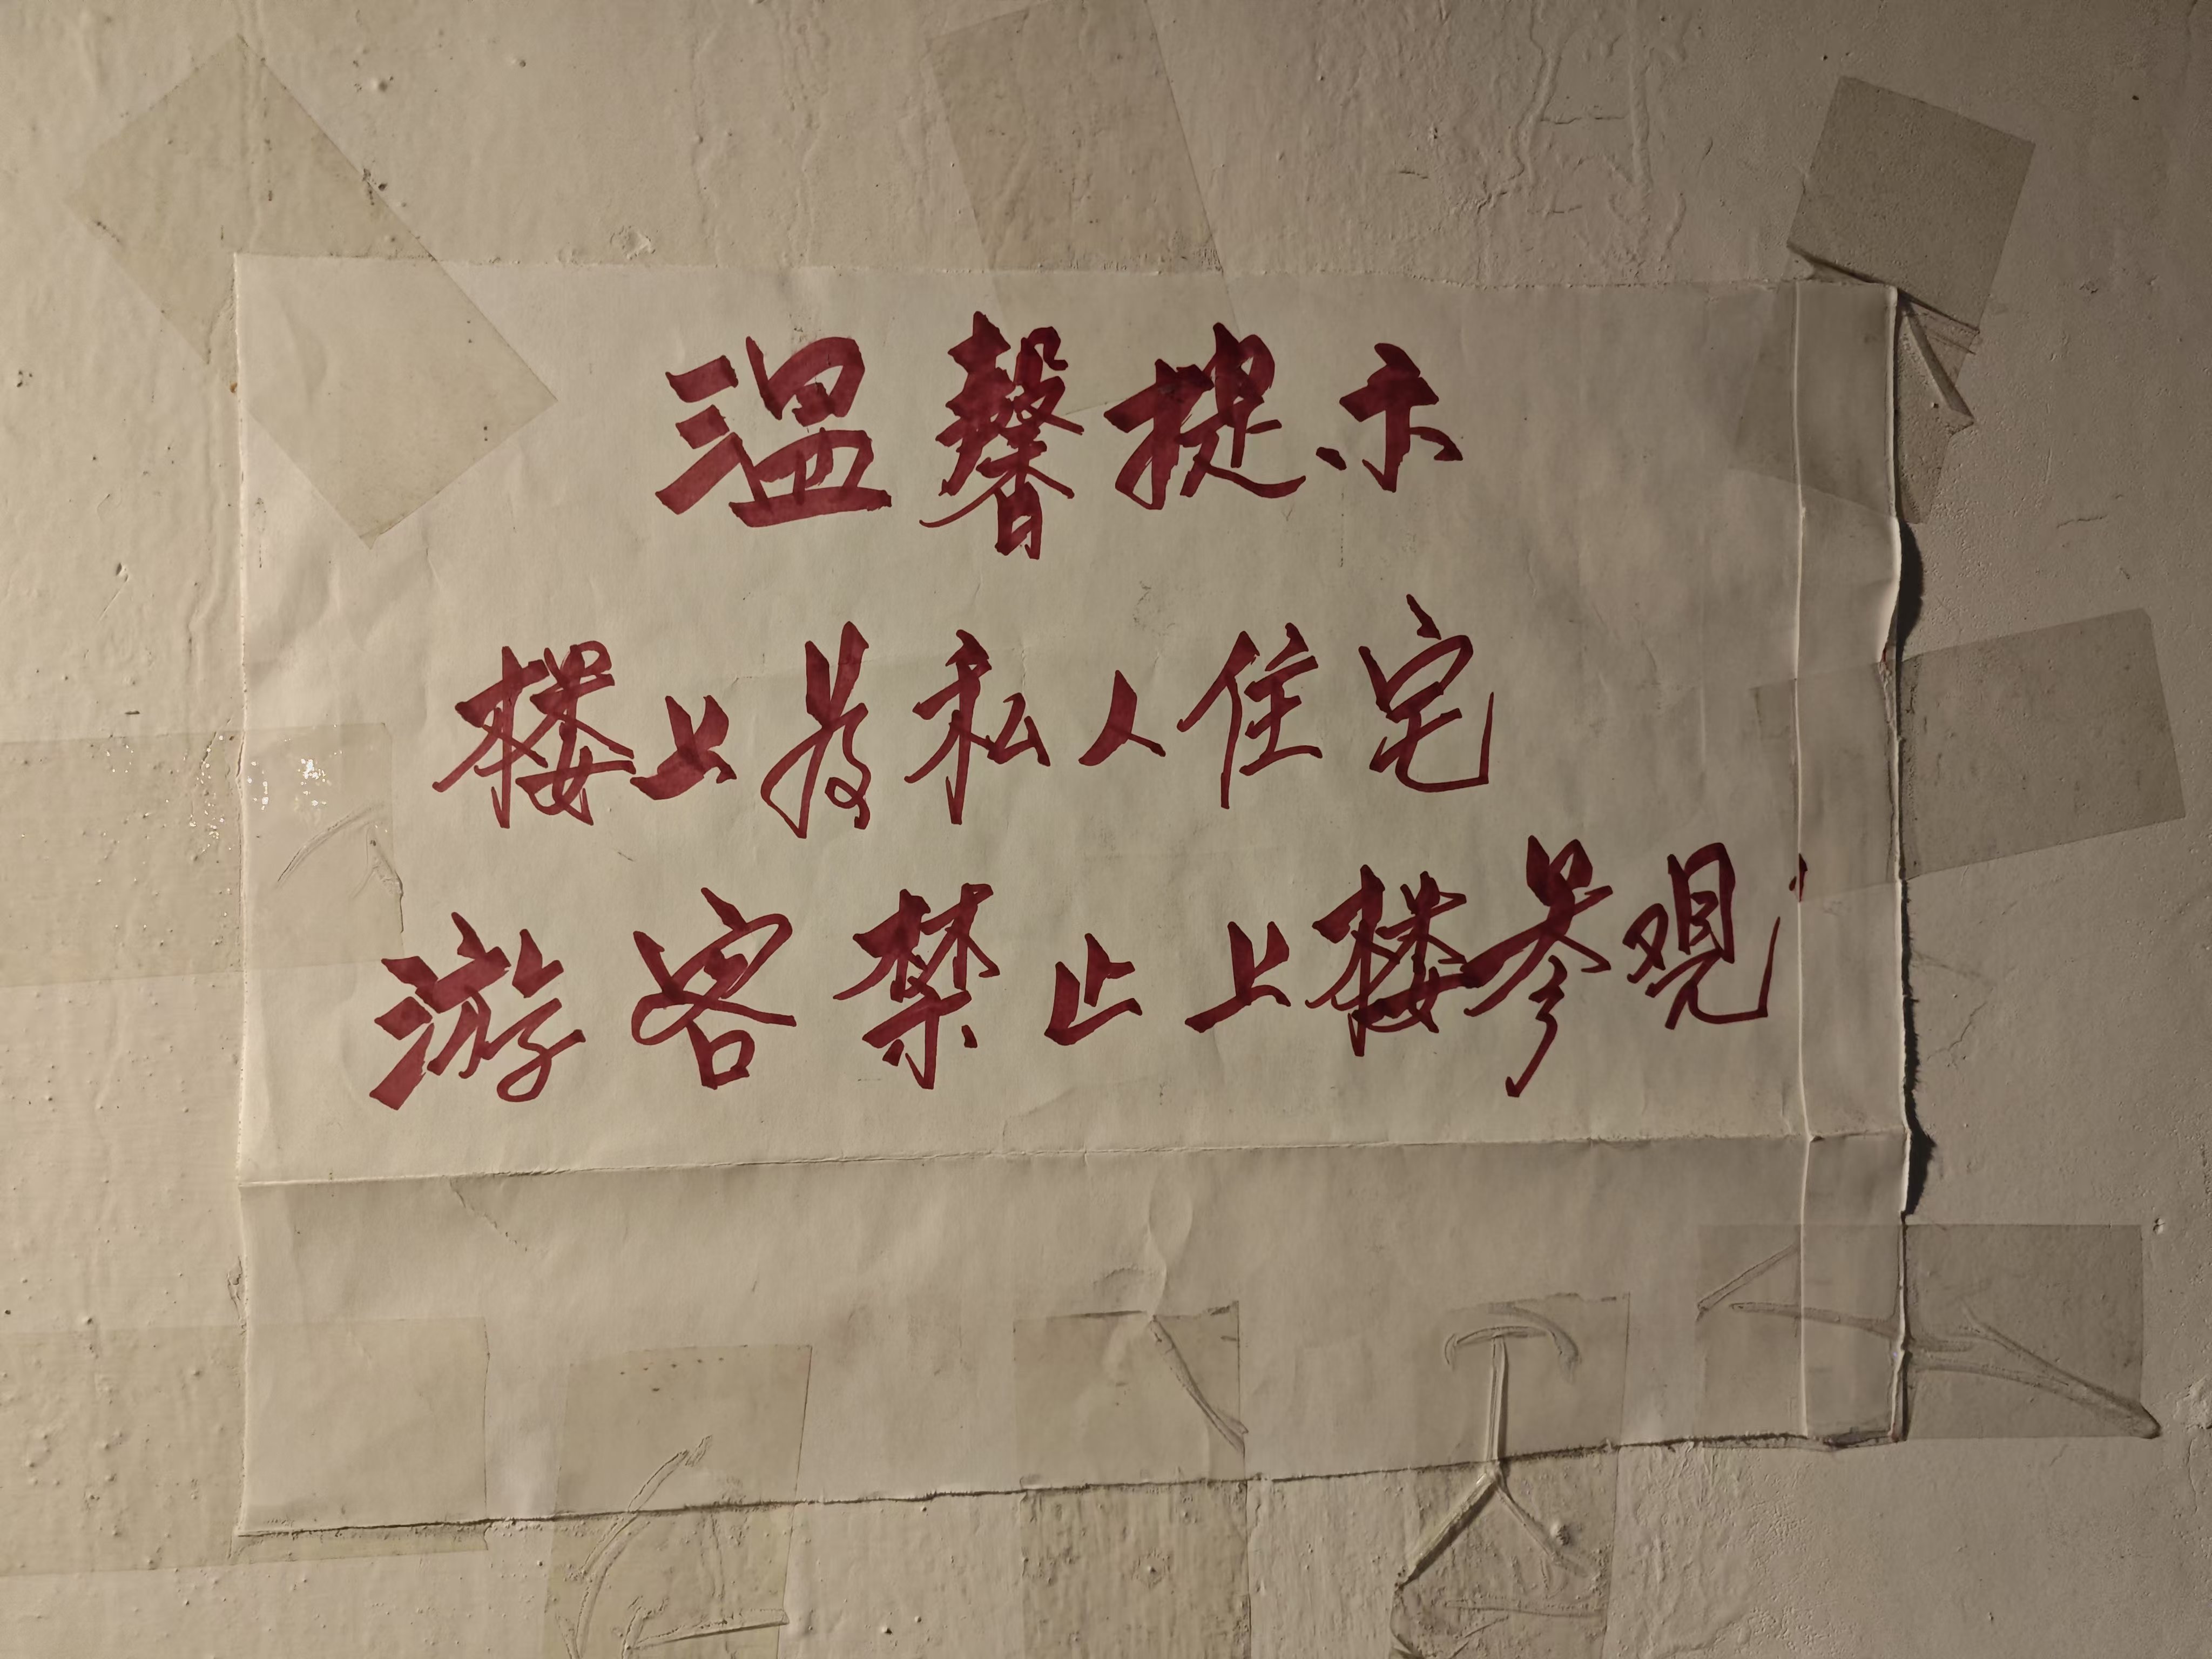 温馨提示
楼上是私人住宅
游客禁止上楼参观